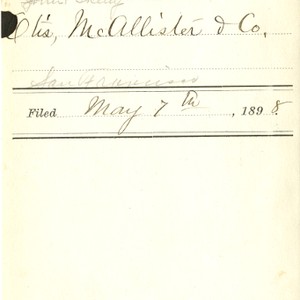 Otis, McAllister & Co.
San Francisco
Filed May 7th, 1898.